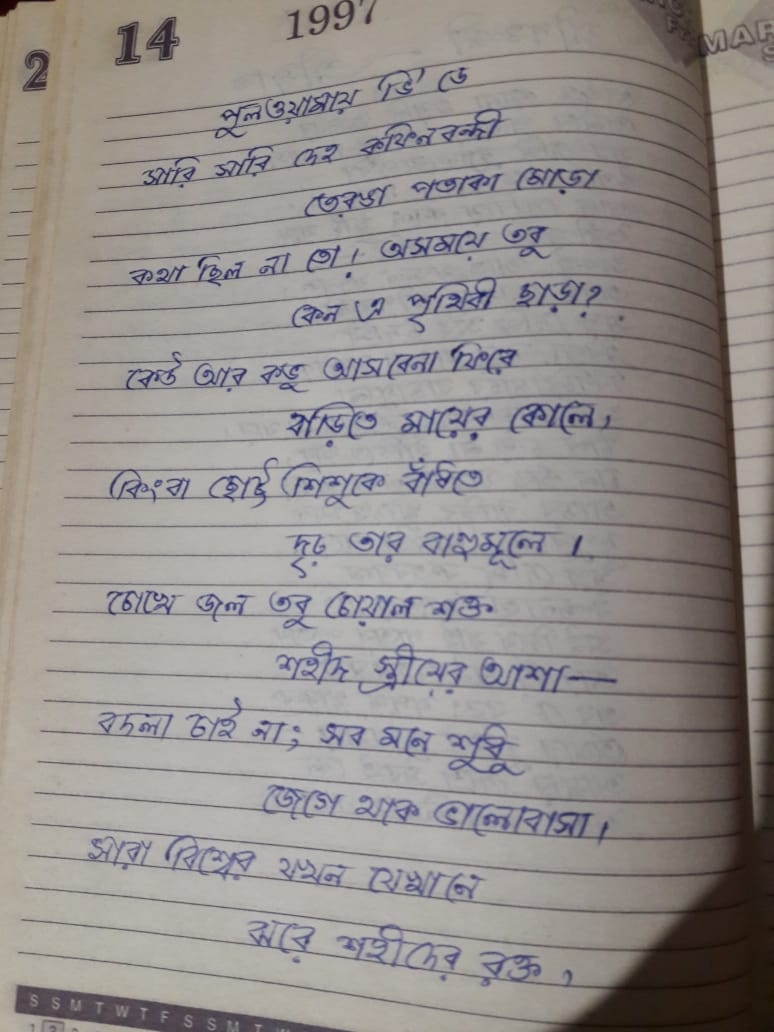 2
14
1997
MAR
S
পুলওয়ামায় ভি ডে
সারি সারি দেহ কফিনবন্দী
তেরঙা পতাকা মোড়া
কথা ছিল না তো! অসময়ে তবু
কেন এ পৃথিবী ছাড়া?
কেউ আর কভু আসবেনা ফিরে
বাড়িতে মায়ের কোলে,
কিংবা ছোট্ট শিশুকে বাঁধিতে
দৃঢ় তার বাহুমূলে।
চোখে জল তবু চোয়াল শক্ত
শহীদ স্ত্রীয়ের আশা—
বদলা চাই না; সব মনে শুধু
জেগে থাক ভালোবাসা।
সারা বিশ্বের যখন যেখানে
ঝরে শহীদের রক্ত,
S S M T W T F S S M T W
1 2